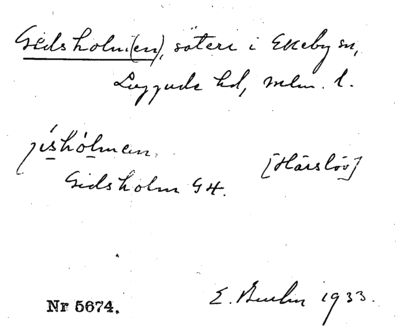 Gidsholm(en), säteri i Ekeby sn,
Luggude hd, mlm. l.
jíshólmen.
[Härslöv]
Gidsholm G4.
Nr 5674.
E. 1933.